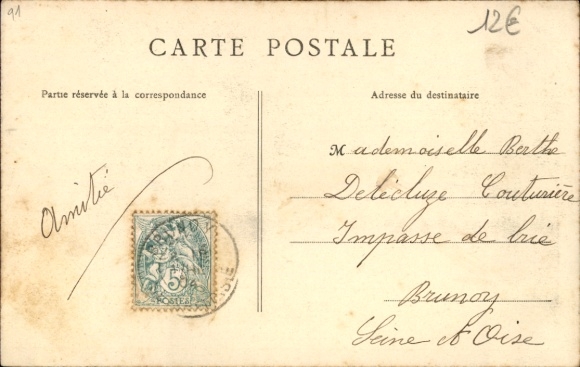 91
12€
CARTE POSTALE
Partie réservée à la correspondance
Adresse du destinataire
Mademoiselle Berthe
Delécluze Couturière
Impasse de brie
Brunoy
Seine et Oise
Amitié
BRUNOY
5
POSTES